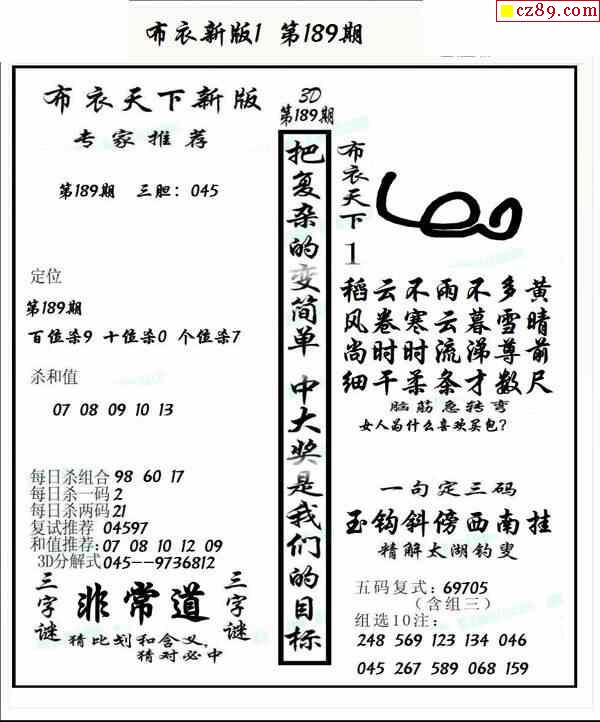 cz89.com
布衣新版1 第189期
布衣天下新版
专家推荐
第189期 三胆：045
定位
第189期
百位杀9 十位杀0 个位杀7
杀和值
07 08 09 10 13
每日杀组合 98 60 17
每日杀一码 2
每日杀两码 21
复试推荐 04597
和值推荐：07 08 10 12 09
3D分解式 045--9736812
三字谜
非常道
三字谜
猜比划和含义，
猜对必中
3D
第189期
把复杂的变简单 中大奖是我们的目标
布衣天下1
稻云不雨不多黄
风卷寒云暮雪晴
尚时时流涕尊前
细干柔条才数尺
脑筋急转弯
女人为什么喜欢买包？
一句定三码
玉钩斜傍西南挂
精解太湖钓叟
五码复式：69705
（含组三）
组选10注：
248 569 123 134 046
045 267 589 068 159